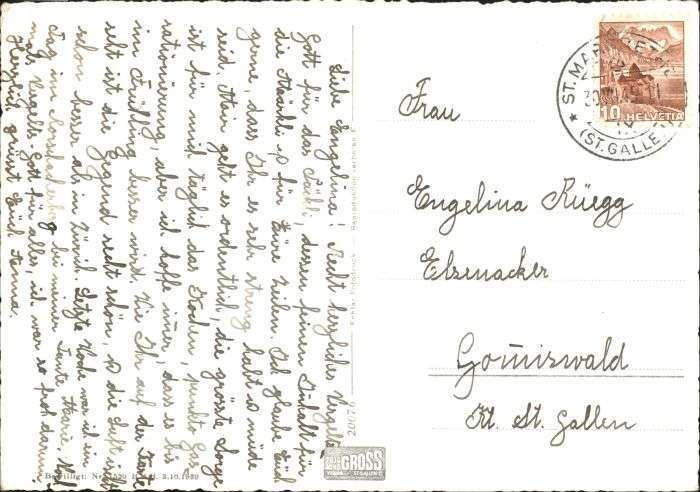 Liebe Engelina! Recht herzliches Vergelts
Gott für das Päckli, dessen feinen Inhalt für
die Mäuli & für Eure Zeilen. Ich glaube Euch
gerne, dass Ihr es sehr streng habt & müde
seid. Mir geht es ordentlich, die grösste Sorge
ist für mich täglich das Kochen, punkto Gas
rationierung, aber ich hoffe immer, dass es bis
im Frühling besser wird. Wie Ihr auf der Karte
seht ist die Gegend recht schön, & die Luft ist
schon besser als in Zürich. Letzte Woche war ich ein
Tag im Rorschacherberg bei meiner Tante Marie. Noch
mals Vergelts-Gott für alles, ich war so froh darum
Herzlich grüsst Euch Anna.
Frau
Engelina Rüegg
Elsenacker
Gom̄iswald
Kt. St. Gallen
ST. MAR
(ST. GALLEN)
10 HELVETIA
GROSS
Bewilligt: 3.10.1939